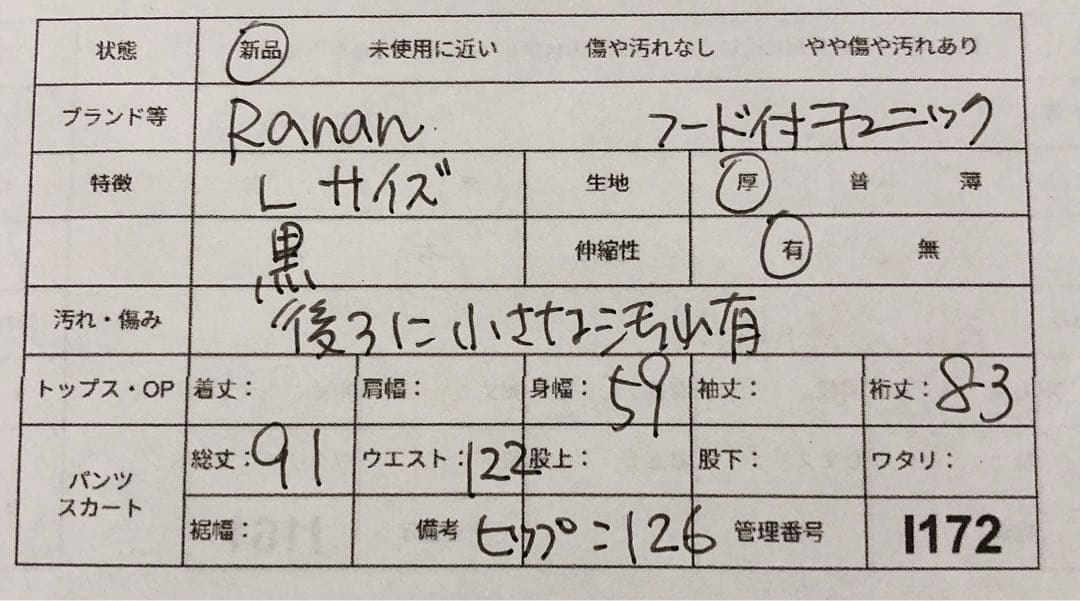 状態 新品 未使用に近い 傷や汚れなし やや傷や汚れあり
ブランド等 Ranan フード付チュニック
特徴 L サイズ 生地 厚 普 薄
黒 伸縮性 有 無
汚れ・傷み 後ろに小さな汚れ有
トップス・OP 着丈: 肩幅: 身幅: 59 袖丈: 裄丈: 83
パンツ スカート 総丈: 91 ウエスト: 122 股上: 股下: ワタリ:
裾幅: 備考 ヒップ:126 管理番号 I172